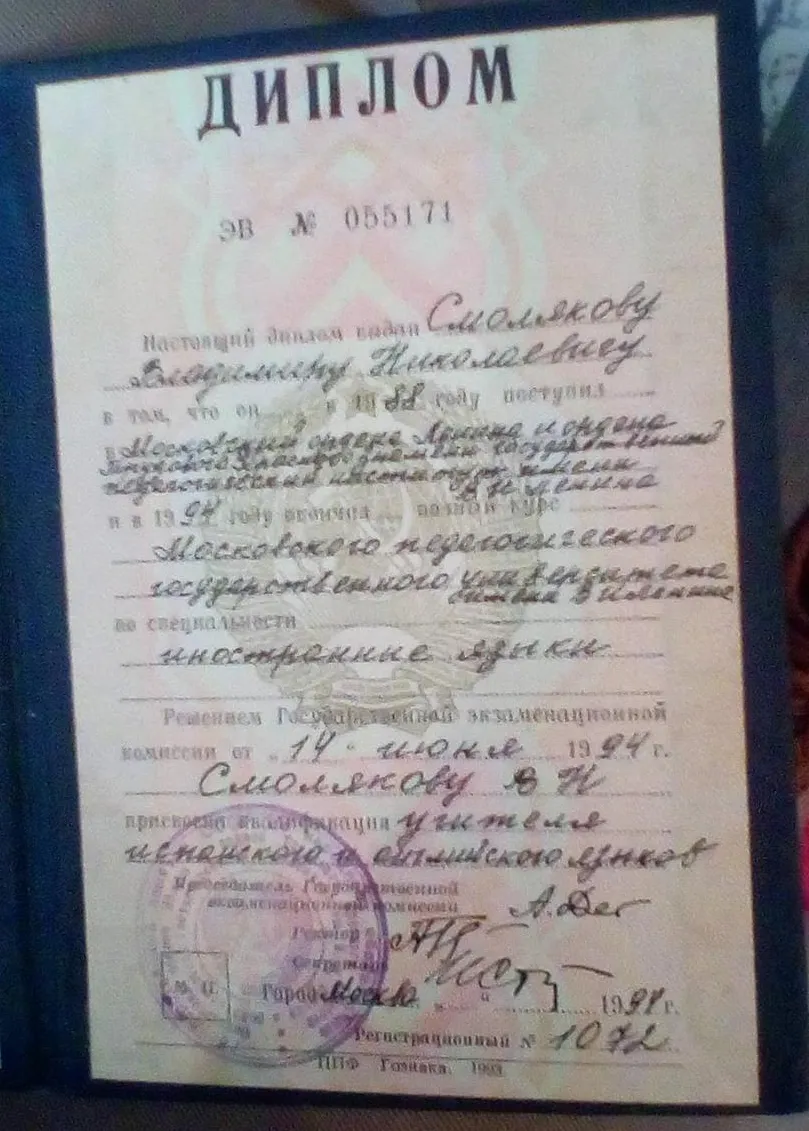 ДИПЛОМ
ЭВ № 055171
Настоящий диплом выдан Смолякову
Владимиру Николаевичу
в том, что он в 1988 году поступил
в Московский ордена Ленина и ордена
Трудового Красного Знамени государственный
педагогический институт имени
В И Ленина
и в 1994 году окончил полный курс
Московского педагогического
государственного университета
имени В И Ленина
по специальности
иностранные языки
Решением Государственной экзаменационной
комиссии от „14“ июня 1994 г.
Смолякову В Н
присвоена квалификация учителя
испанского и английского языков
Председатель Государственной
экзаменационной комиссии
Ректор
Секретарь
М. П.
Город Москва „ “ 1994 г.
Регистрационный № 1072
ППФ Гознака. 1993